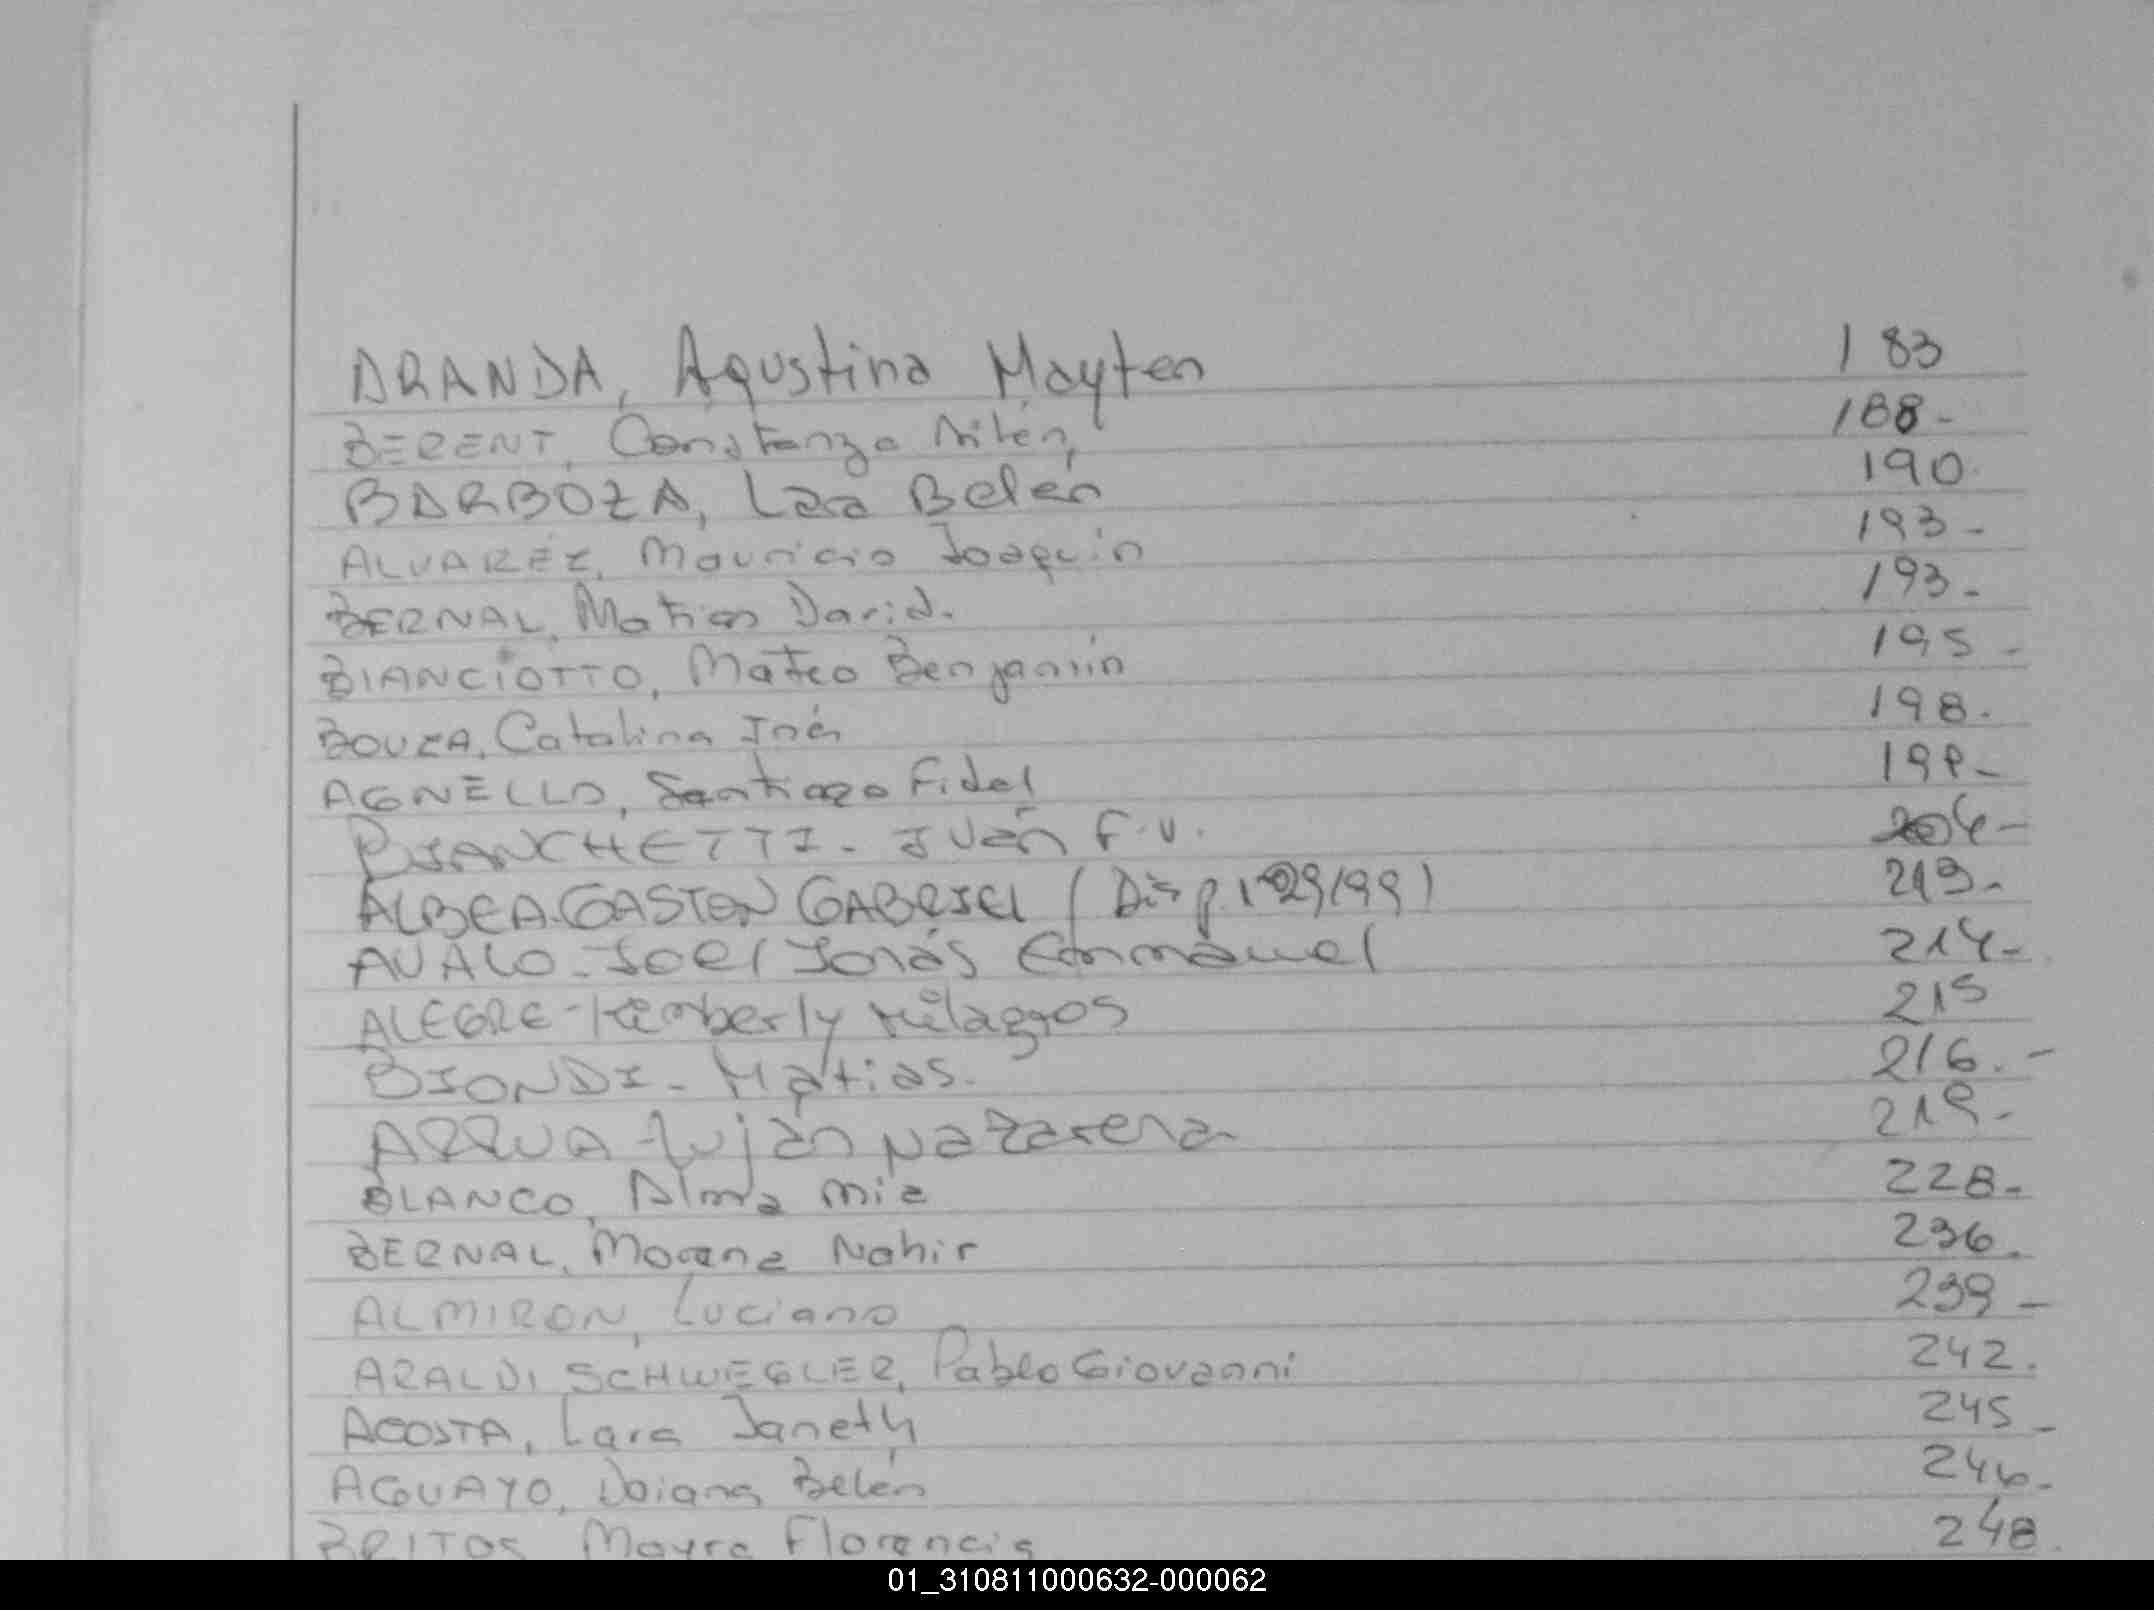 ARANDA, Agustina Mayten 183
BERENT, Constanza Ailén, 188-
BARBOZA, Lara Belén 190
ALVAREZ, Mauricio Joaquin 193-
BERNAL, Matias David. 193-
BIANCIOTTO, Mateo Benjamín 195-
BOUZA, Catalina Inés 198.
AGNELLO, Santiago Fidel 199-
BIANCHETTI- Iván F.V. 204-
ALBEA-GASTON GABRIEL (Disp. 1029/99) 213-
AVALO-Joel Jonás Emmanuel 214-
ALEGRE-Kimberly Milagros 215
BIONDI- Matías. 216.-
ARRUA-Luján Nazarena 219-
BLANCO, Alma Mía 228-
BERNAL, Morena Nahir 236.
ALMIRON, Luciano 239-
ARALDI SCHWEGLER, Pablo Giovanni 242.
ACOSTA, Lara Janeth 245-
AGUAYO, Daiana Belén 246-
BRITOS Mayra Florencia 248.
01_310811000632-000062